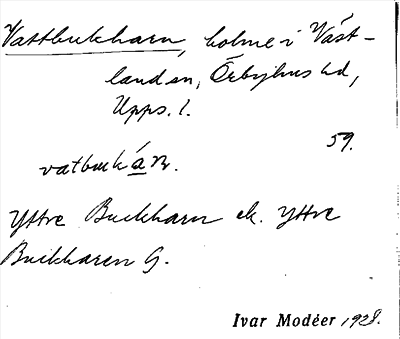 Vattbukharn, holme i Väst-
landsn, Örbyhus hd,
Upps. l.
59.
vatbukán.
Yttre Buckharn ek. Yttre
Buckharen G.
Ivar Modéer 1928.